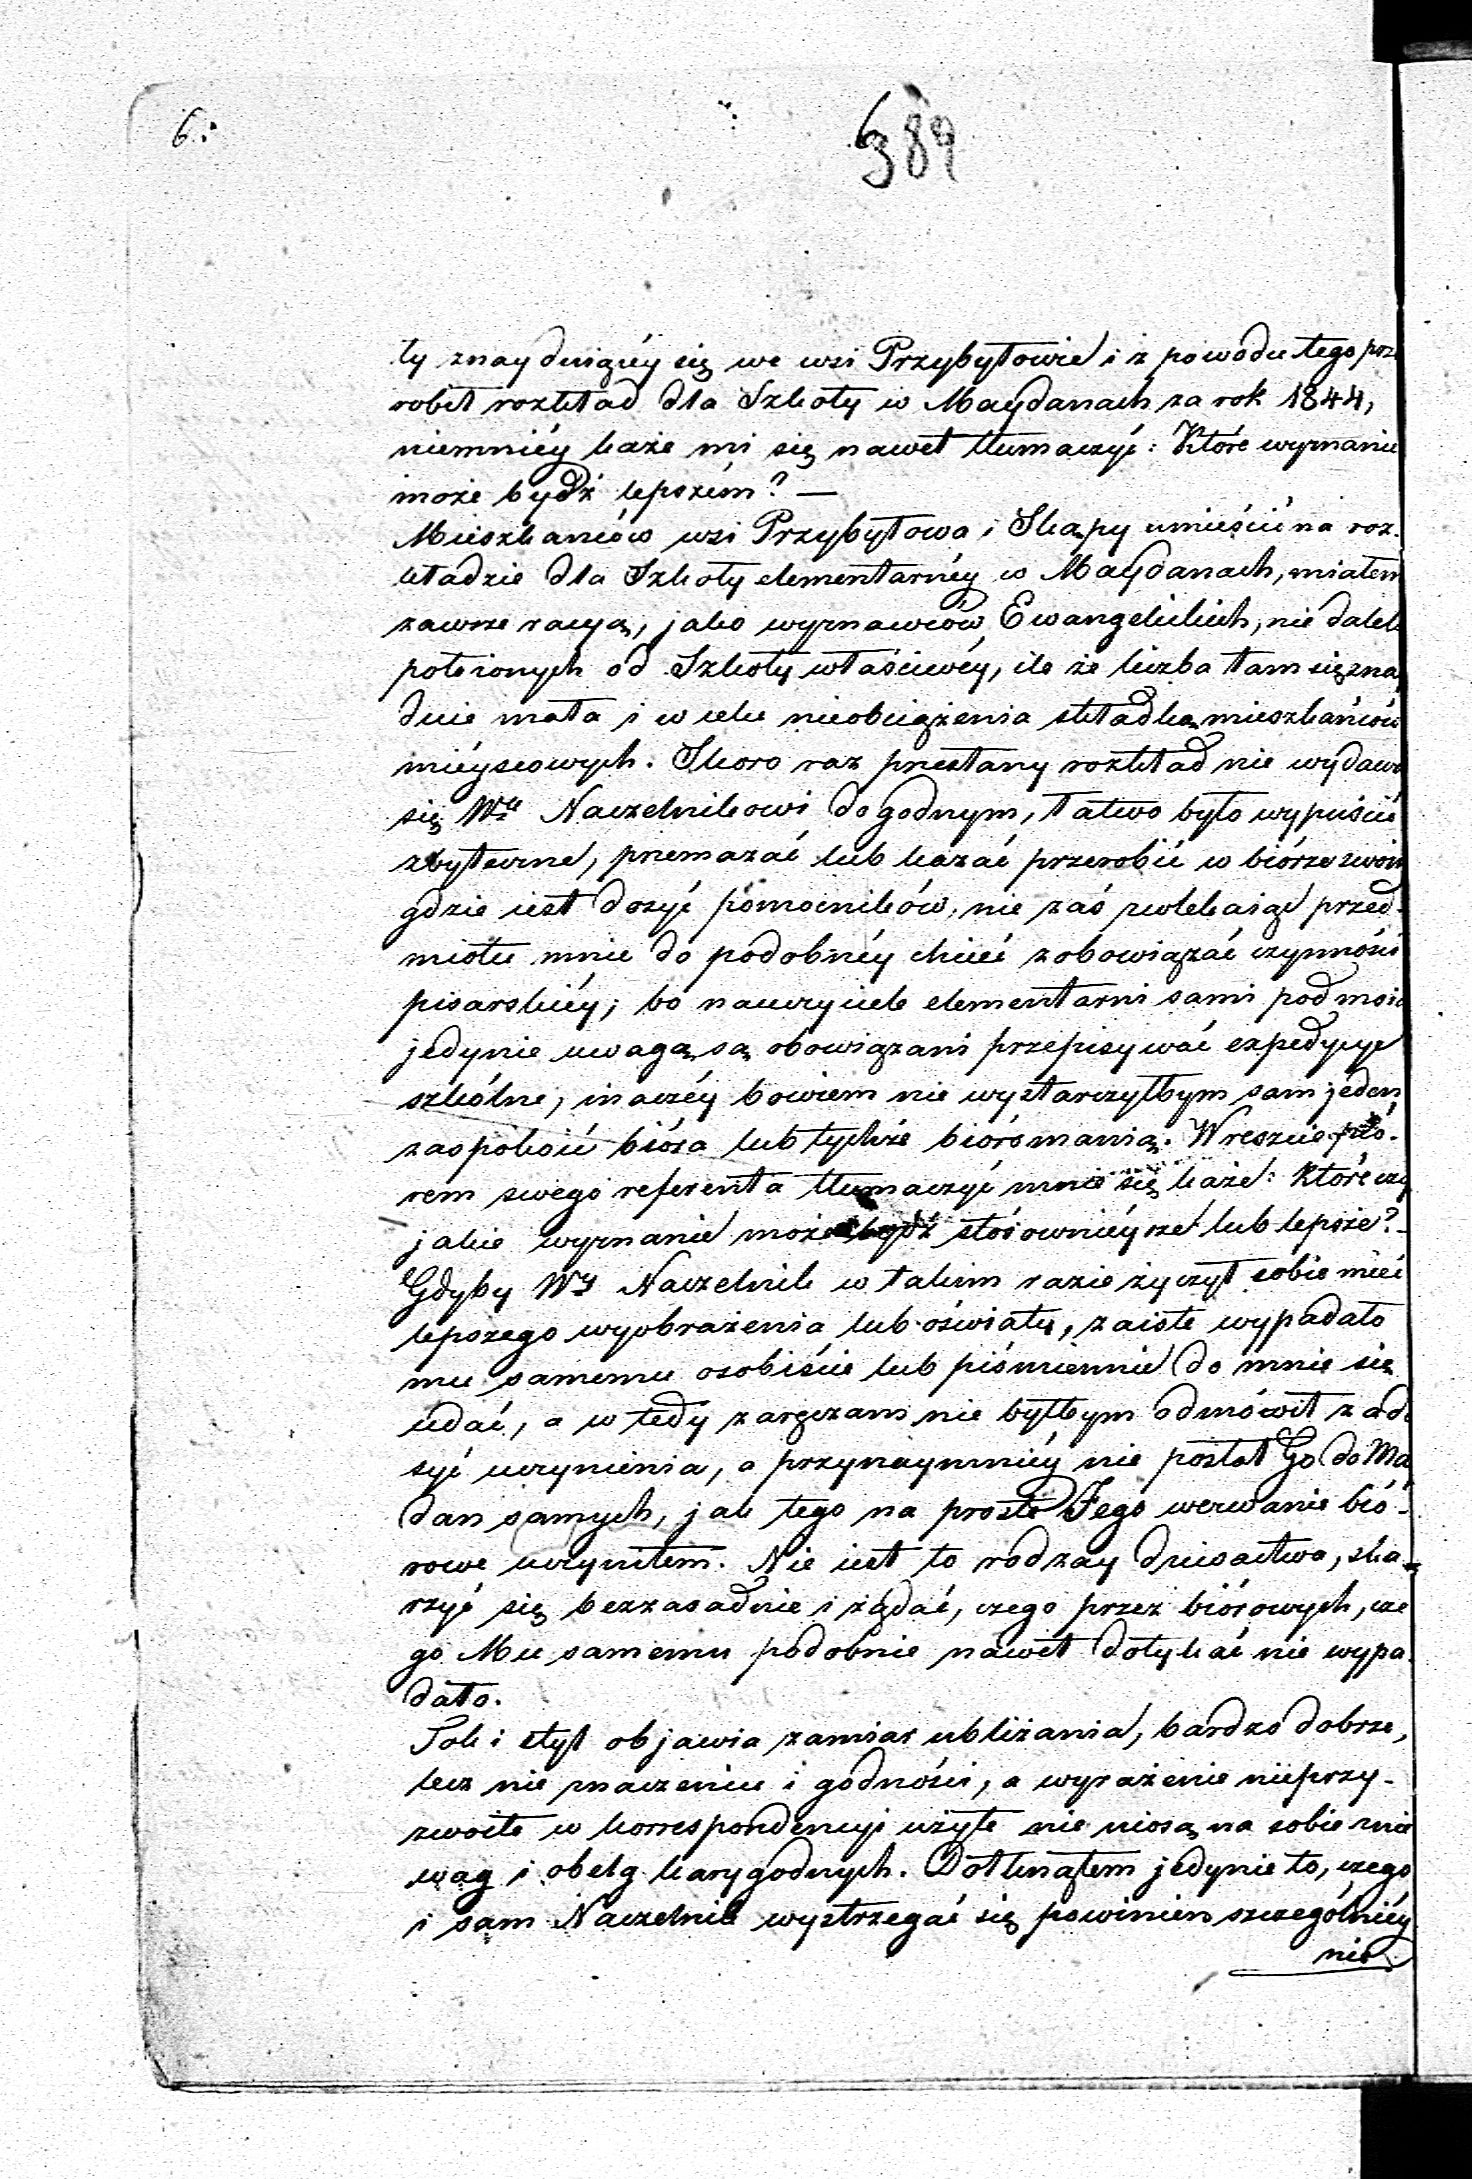 6.
6
389
ły znayduiącéy się we wsi Przybyłowie i z powodu tego prze
robił rozkład dla Szkoły w Maydanach za rok 1844,
niemniéy każe mi się nawet tłumaczyć: Które wyznanie
może bydź lepszém? —
Mieszkańców wsi Przybyłowa i Skąpy umieścić na roz-
kładzie dla Szkoły elementarnéy w Maydanach, miałem
zawsze racyą, jako wyznawców Ewangelickich, nie dalek
położonych od Szkoły właściwéy, ile że liczba tam się znay
duie mała i w celu nieobciążenia składką mieszkańców
miéyscowych. Skoro raz przesłany rozkład nie wydawa
się Wmu Naczelnikowi dogodnym, łatwo było wypuścić
zbyteczne, przemazać lub kazać przerobić w biórze swoim
gdzie iest dosyć pomocników, nie zaś zwlekaiąc przed-
miotu mnie do podobnéy chcieć zobowiązać czynności
pisarskiéy; bo nauczyciele elementarni sami pod moią
jedynie uwagą są obowiązani przepisywać expedycye
szkólne, inaczéy bowiem nie wystarczyłbym sam jeden
zaspokoić bióra lub tychże bióromanią. Wreszcie pió-
rem swego referenta tłumaczyć mnie się każe: Które czy
jakie wyznanie może bydź stósownieysze lub lepsze?
Gdyby Wy Naczelnik w takim razie życzył sobie mieć
lepszego wyobrażenia lub oświaty, zaiste wypadało
mu samemu osobiście lub piśmiennie do mnie się
udać, a w tedy zaręczam nie byłbym odmówił zado
syć uczynienia, a przynaymniéy nie posłał Go do May
dan samych, jak tego na proste Jego wezwanie bió-
rowe uczyniłem. Nie iest to rodzay dziwactwa, ska-
rzyć się bezzasadnie i żądać, czego przez biórowych, cze
go Mu samemu podobnie nawet dotykać nie wypa-
dało.
Tok i styl objawia zamiar ubliżania, bardzo dobrze,
lecz nie znaczeniu i godności, a wyrażenie nieprzy-
zwoite w korrespondencyi użyte nie niosą na sobie znie
wag i obelg karygodnych. Dotknąłem jedynie to, czego
i sam Naczelnik wystrzegać się powinien szczególniéy
nie